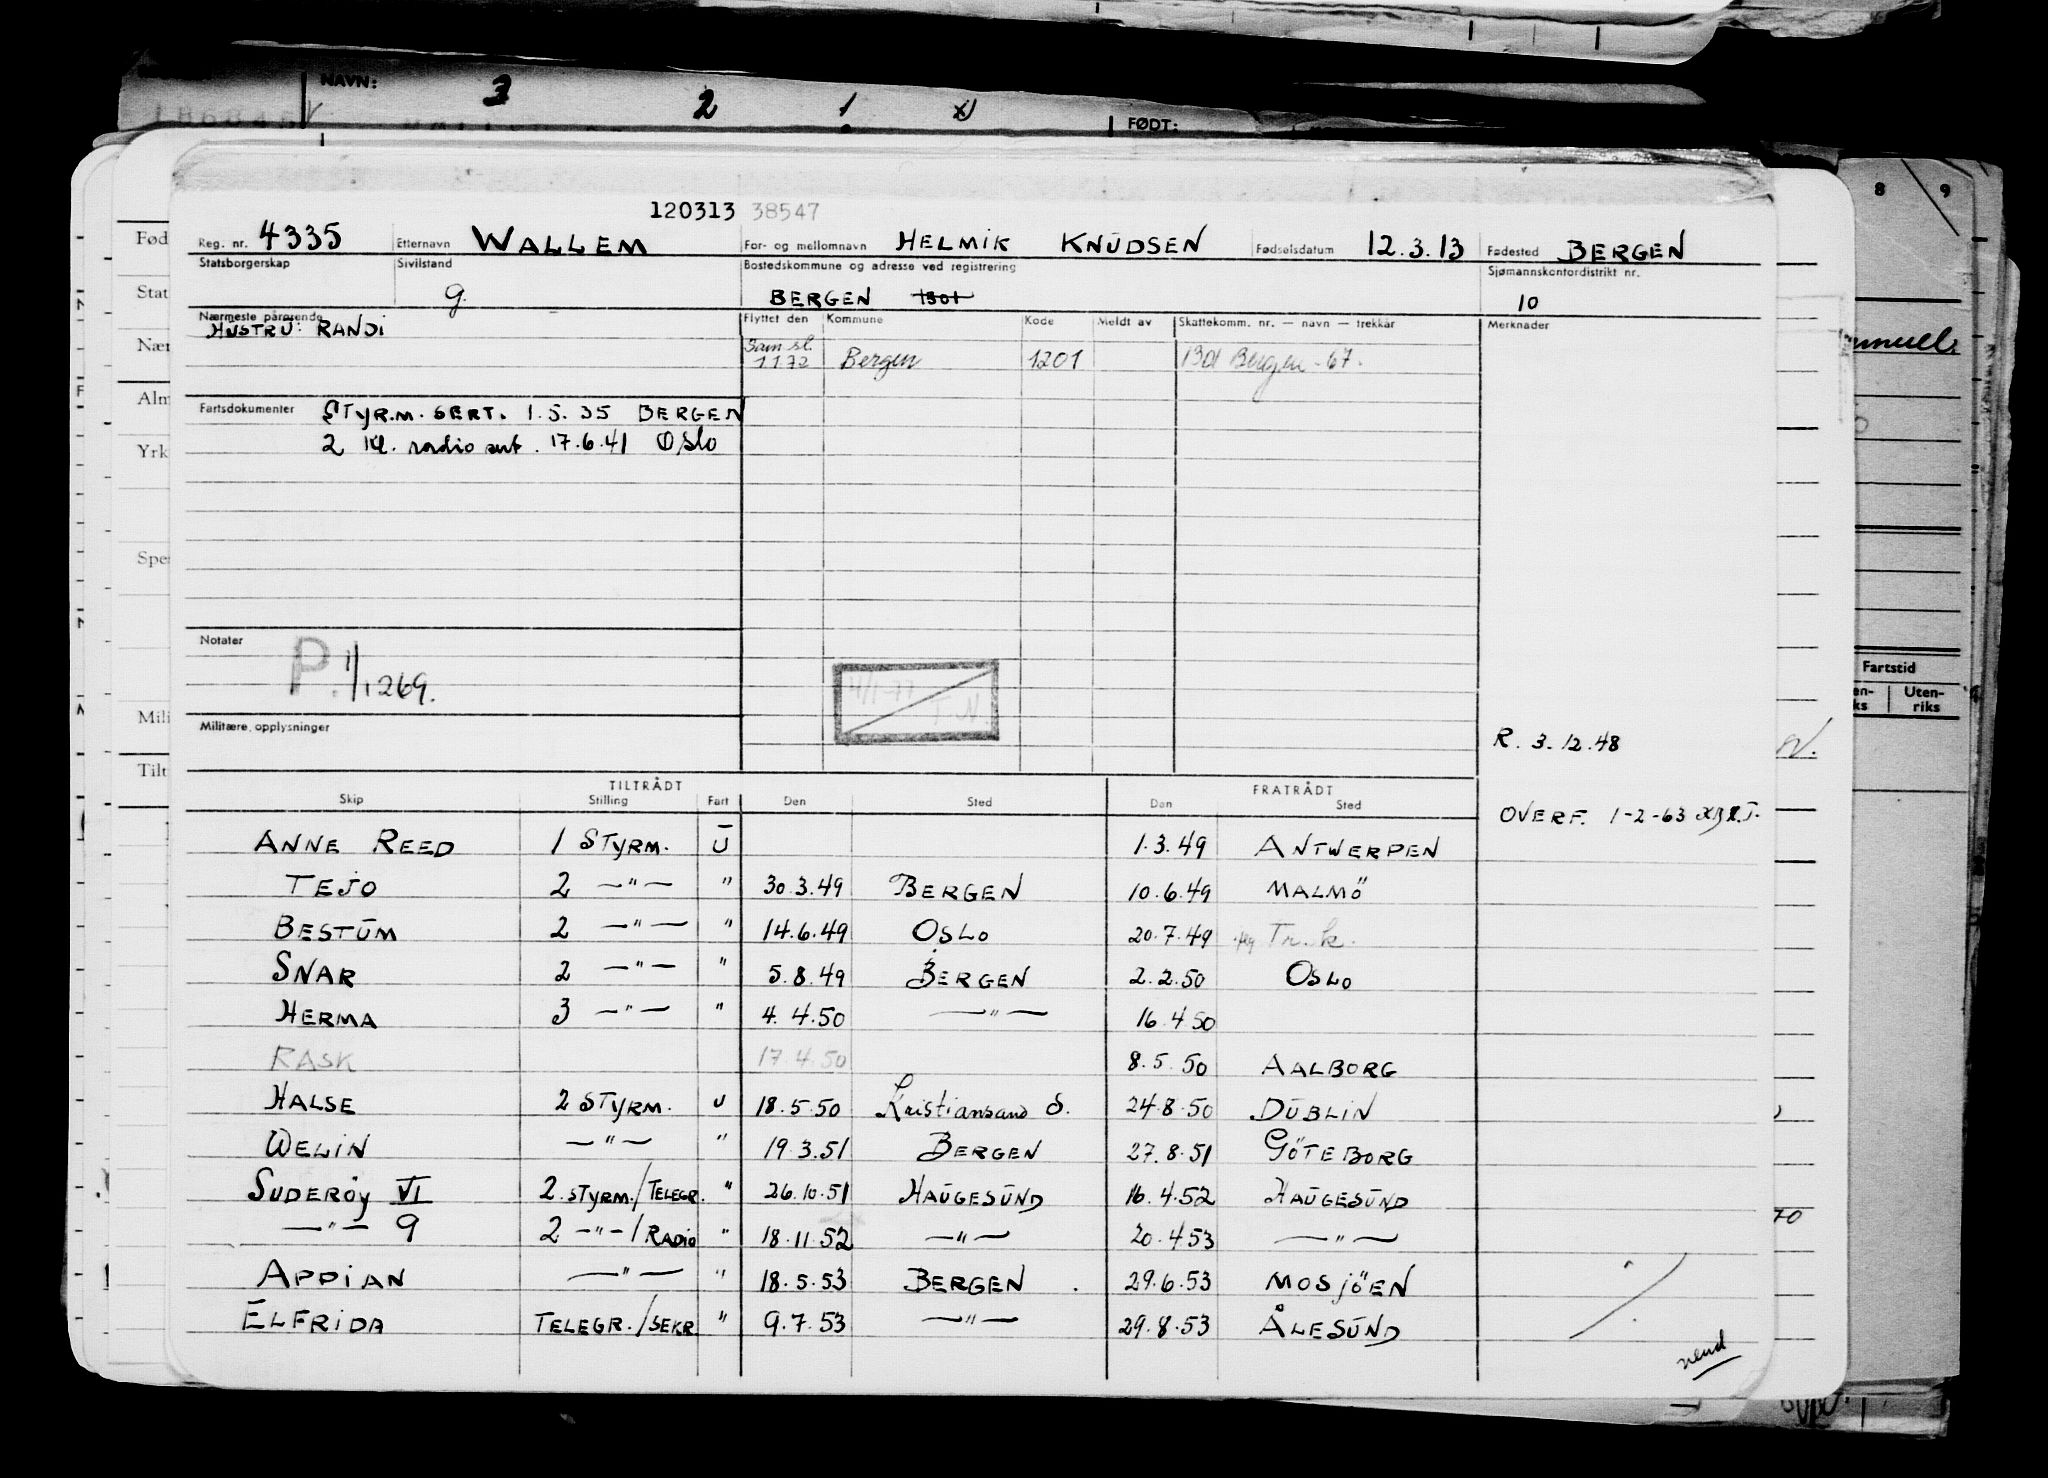 NAVN: 3 2 1
FØDT:
8 9
120313 38547
Reg. nr. 4335 Etternavn WALLEM For- og mellomnavn HELMIK KNUDSEN Fødselsdatum 12.3.13 Fødested BERGEN
Statsborgerskap Sivilstand Bostedskommune og adresse ved registrering Sjømannskontordistrikt nr.
g. BERGEN 1301 10
Nærmeste pårørende Flyttet den Kommune Kode Meldt av Skattekomm. nr. — navn — trekkår Merknader
HUSTRU: RANDI
Sam sl.
1172 Bergen 1201 1301 Bergen - 67.
Fartsdokumenter STYRM. SERT. 1.5.35 BERGEN
2 kl. radio sert. 17.6.41 Oslo
Notater
P. 1/1269.
4/1-77 T.N.
Militære opplysninger
R. 3.12.48
TILTRÅDT FRATRÅDT
Skip Stilling Fart Den Sted Den Sted
OVERF. 1-2-63
ANNE REED 1 STYRM. U 1.3.49 ANTWERPEN
TEJO 2 —"— " 30.3.49 BERGEN 10.6.49 MALMÖ
BESTUM 2 —"— " 14.6.49 OSLO 20.7.49 Tr.h.
SNAR 2 —"— " 5.8.49 BERGEN 2.2.50 OSLO
HERMA 3 —"— " 4.4.50 —"— 16.4.50
RASK 17.4.50 8.5.50 AALBORG
HALSE 2 STYRM. U 18.5.50 Kristiansand S. 24.8.50 DUBLIN
WELIN —"— " 19.3.51 BERGEN 27.8.51 GÖTEBORG
SUDERØY VI 2. STYRM./TELEGR. " 26.10.51 HAUGESUND 16.4.52 HAUGESUND
—"— 9 2 —"—/RADIO " 18.11.52 —"— 20.4.53 —"—
APPIAN —"— " 18.5.53 BERGEN 29.6.53 MOSJÖEN
ELFRIDA TELEGR./SEKR " 9.7.53 —"— 29.8.53 ÅLESUND
vend
Fød
Stat
Nær
Alm
Yrk
Spe
Mili
Tilt
Fartstid
Uten-
riks